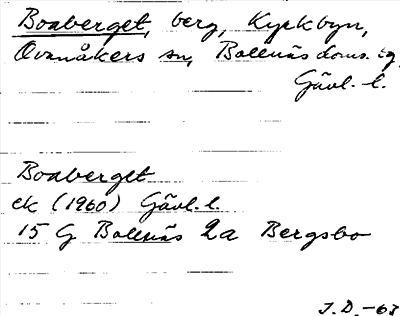 Boaberget, berg, Kyrkbyn,
Ovanåkers sn, Bollnäs doms. tg,
Gävl. l.
Boaberget
ek (1960) Gävl. l.
15 G Bollnäs 2a Bergsbo
J.D.-63